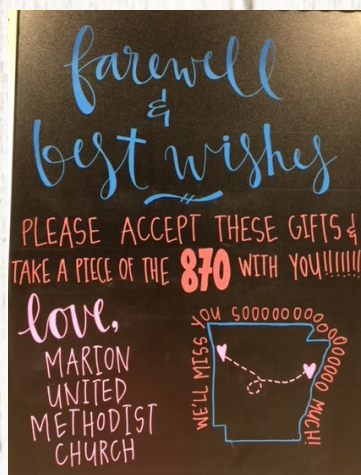 farewell
&
best wishes
PLEASE ACCEPT THESE GIFTS &
TAKE A PIECE OF THE 870 WITH YOU!!!!!!!
love,
MARION
UNITED
METHODIST
CHURCH
WE'LL MISS YOU SOOOOOOOOOOOOOOOO MUCH!